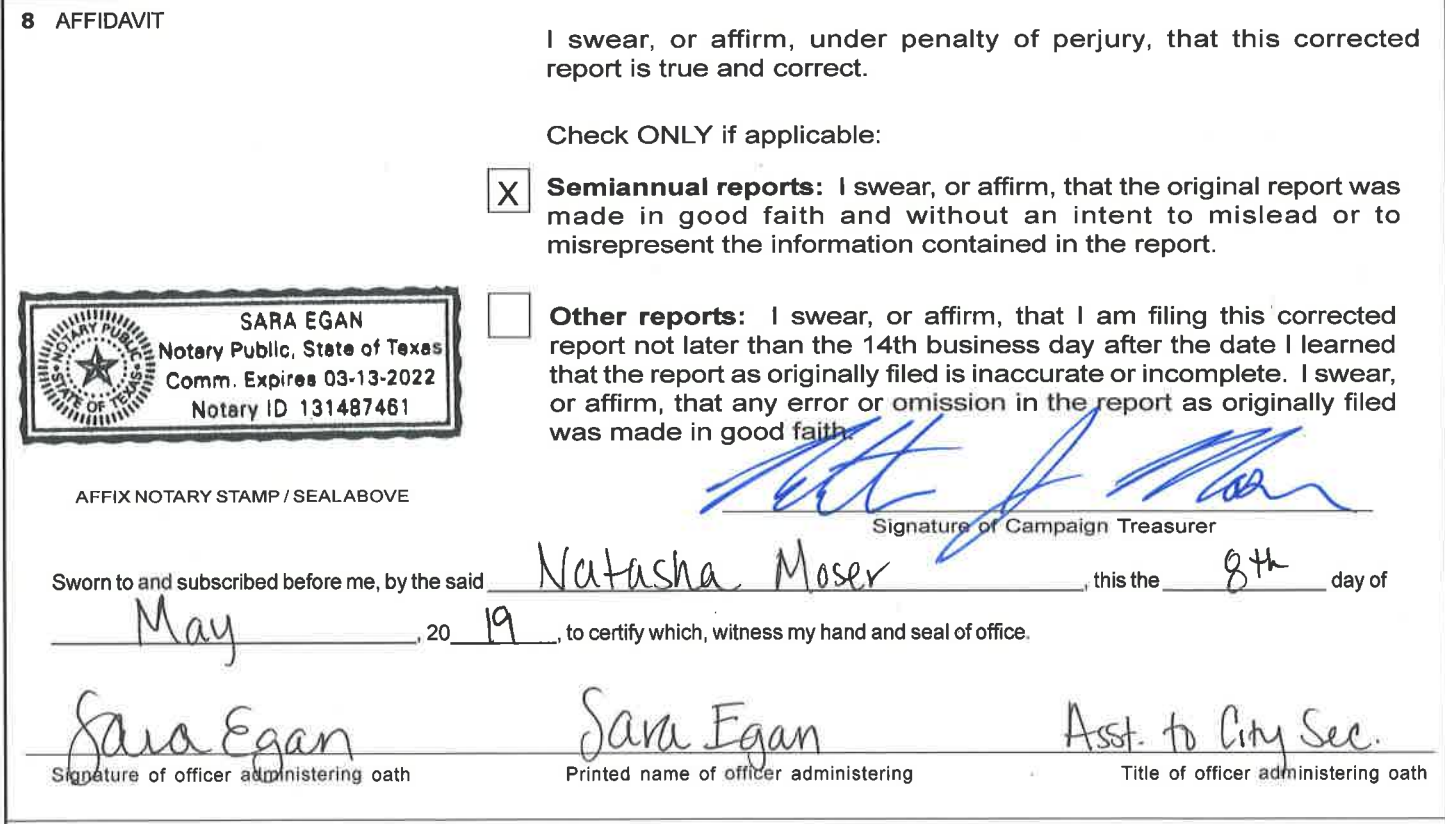 8 AFFIDAVIT
I swear, or affirm, under penalty of perjury, that this corrected
report is true and correct.
Check ONLY if applicable:
X Semiannual reports: I swear, or affirm, that the original report was
made in good faith and without an intent to mislead or to
misrepresent the information contained in the report.
Other reports: I swear, or affirm, that I am filing this corrected
report not later than the 14th business day after the date I learned
that the report as originally filed is inaccurate or incomplete. I swear,
or affirm, that any error or omission in the report as originally filed
was made in good faith.
NOTARY PUBLIC
STATE OF TEXAS
SARA EGAN
Notary Public, State of Texas
Comm. Expires 03-13-2022
Notary ID 131487461
AFFIX NOTARY STAMP / SEALABOVE
Signature of Campaign Treasurer
Sworn to and subscribed before me, by the said Natasha Moser, this the 8th day of
May, 20 19, to certify which, witness my hand and seal of office.
Sara Egan Sara Egan Asst. to City Sec.
Signature of officer administering oath Printed name of officer administering Title of officer administering oath